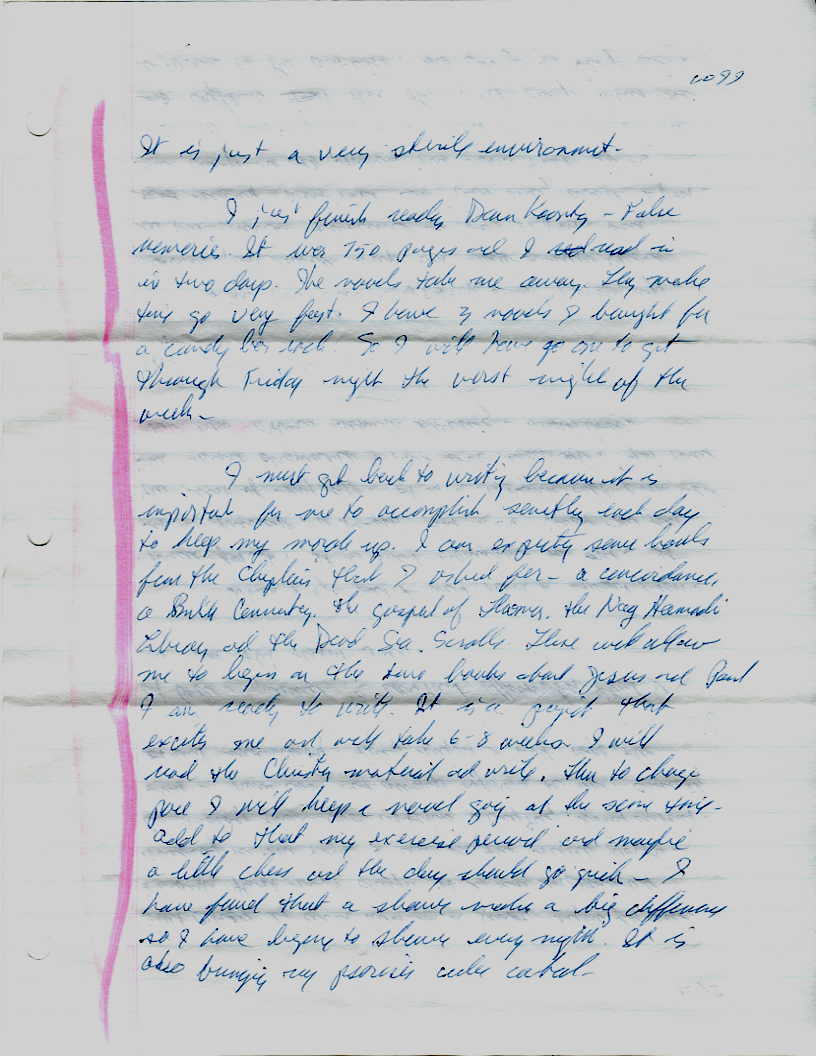 0099
It is just a very sterile environment.
I just finish reading Dean Koontz - False
memories. It was 750 pages and I read in
in two days. The novels take me away. They make
time go very fast. I have 3 novels I bought for
a candy bar each. So I will have go one to get
through Friday night the worst night of the
week -
I must get back to writing because it is
important for me to accomplish something each day
to keep my morale up. I am expecting some books
from the Chaplain that I asked for - a concordance,
a Bible Commentary. the gospel of Thomas. the Nag Hamadi
Library and the Dead Sea. Scrolls. These will allow
me to begin on the two books about Jesus and Paul
I am ready to write. It is a project that
excites me and will take 6-8 weeks. I will
read the Christian material and write. Then to change
pace I will keep a novel going at the same time -
add to that my exercise period and maybe
a little chess and the day should go quick - I
have found that a shower makes a big difference
so I have begun to shower every night. It is
also bringing my psoriasis under control -